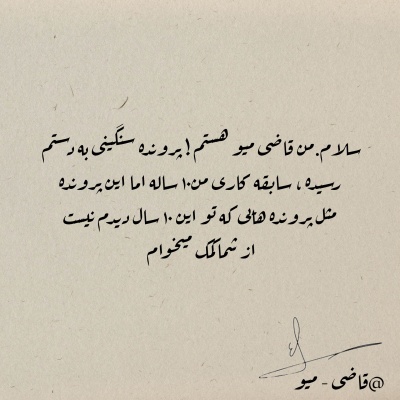 سلام. من قاضی میو هستم! پرونده سنگینی به دستم
رسیده ، سابقه کاری من ۱۰ ساله اما این پرونده
مثل پرونده هائی که تو این ۱۰ سال دیدم نیست
از شما کمک میخوام
@قاضی - میو